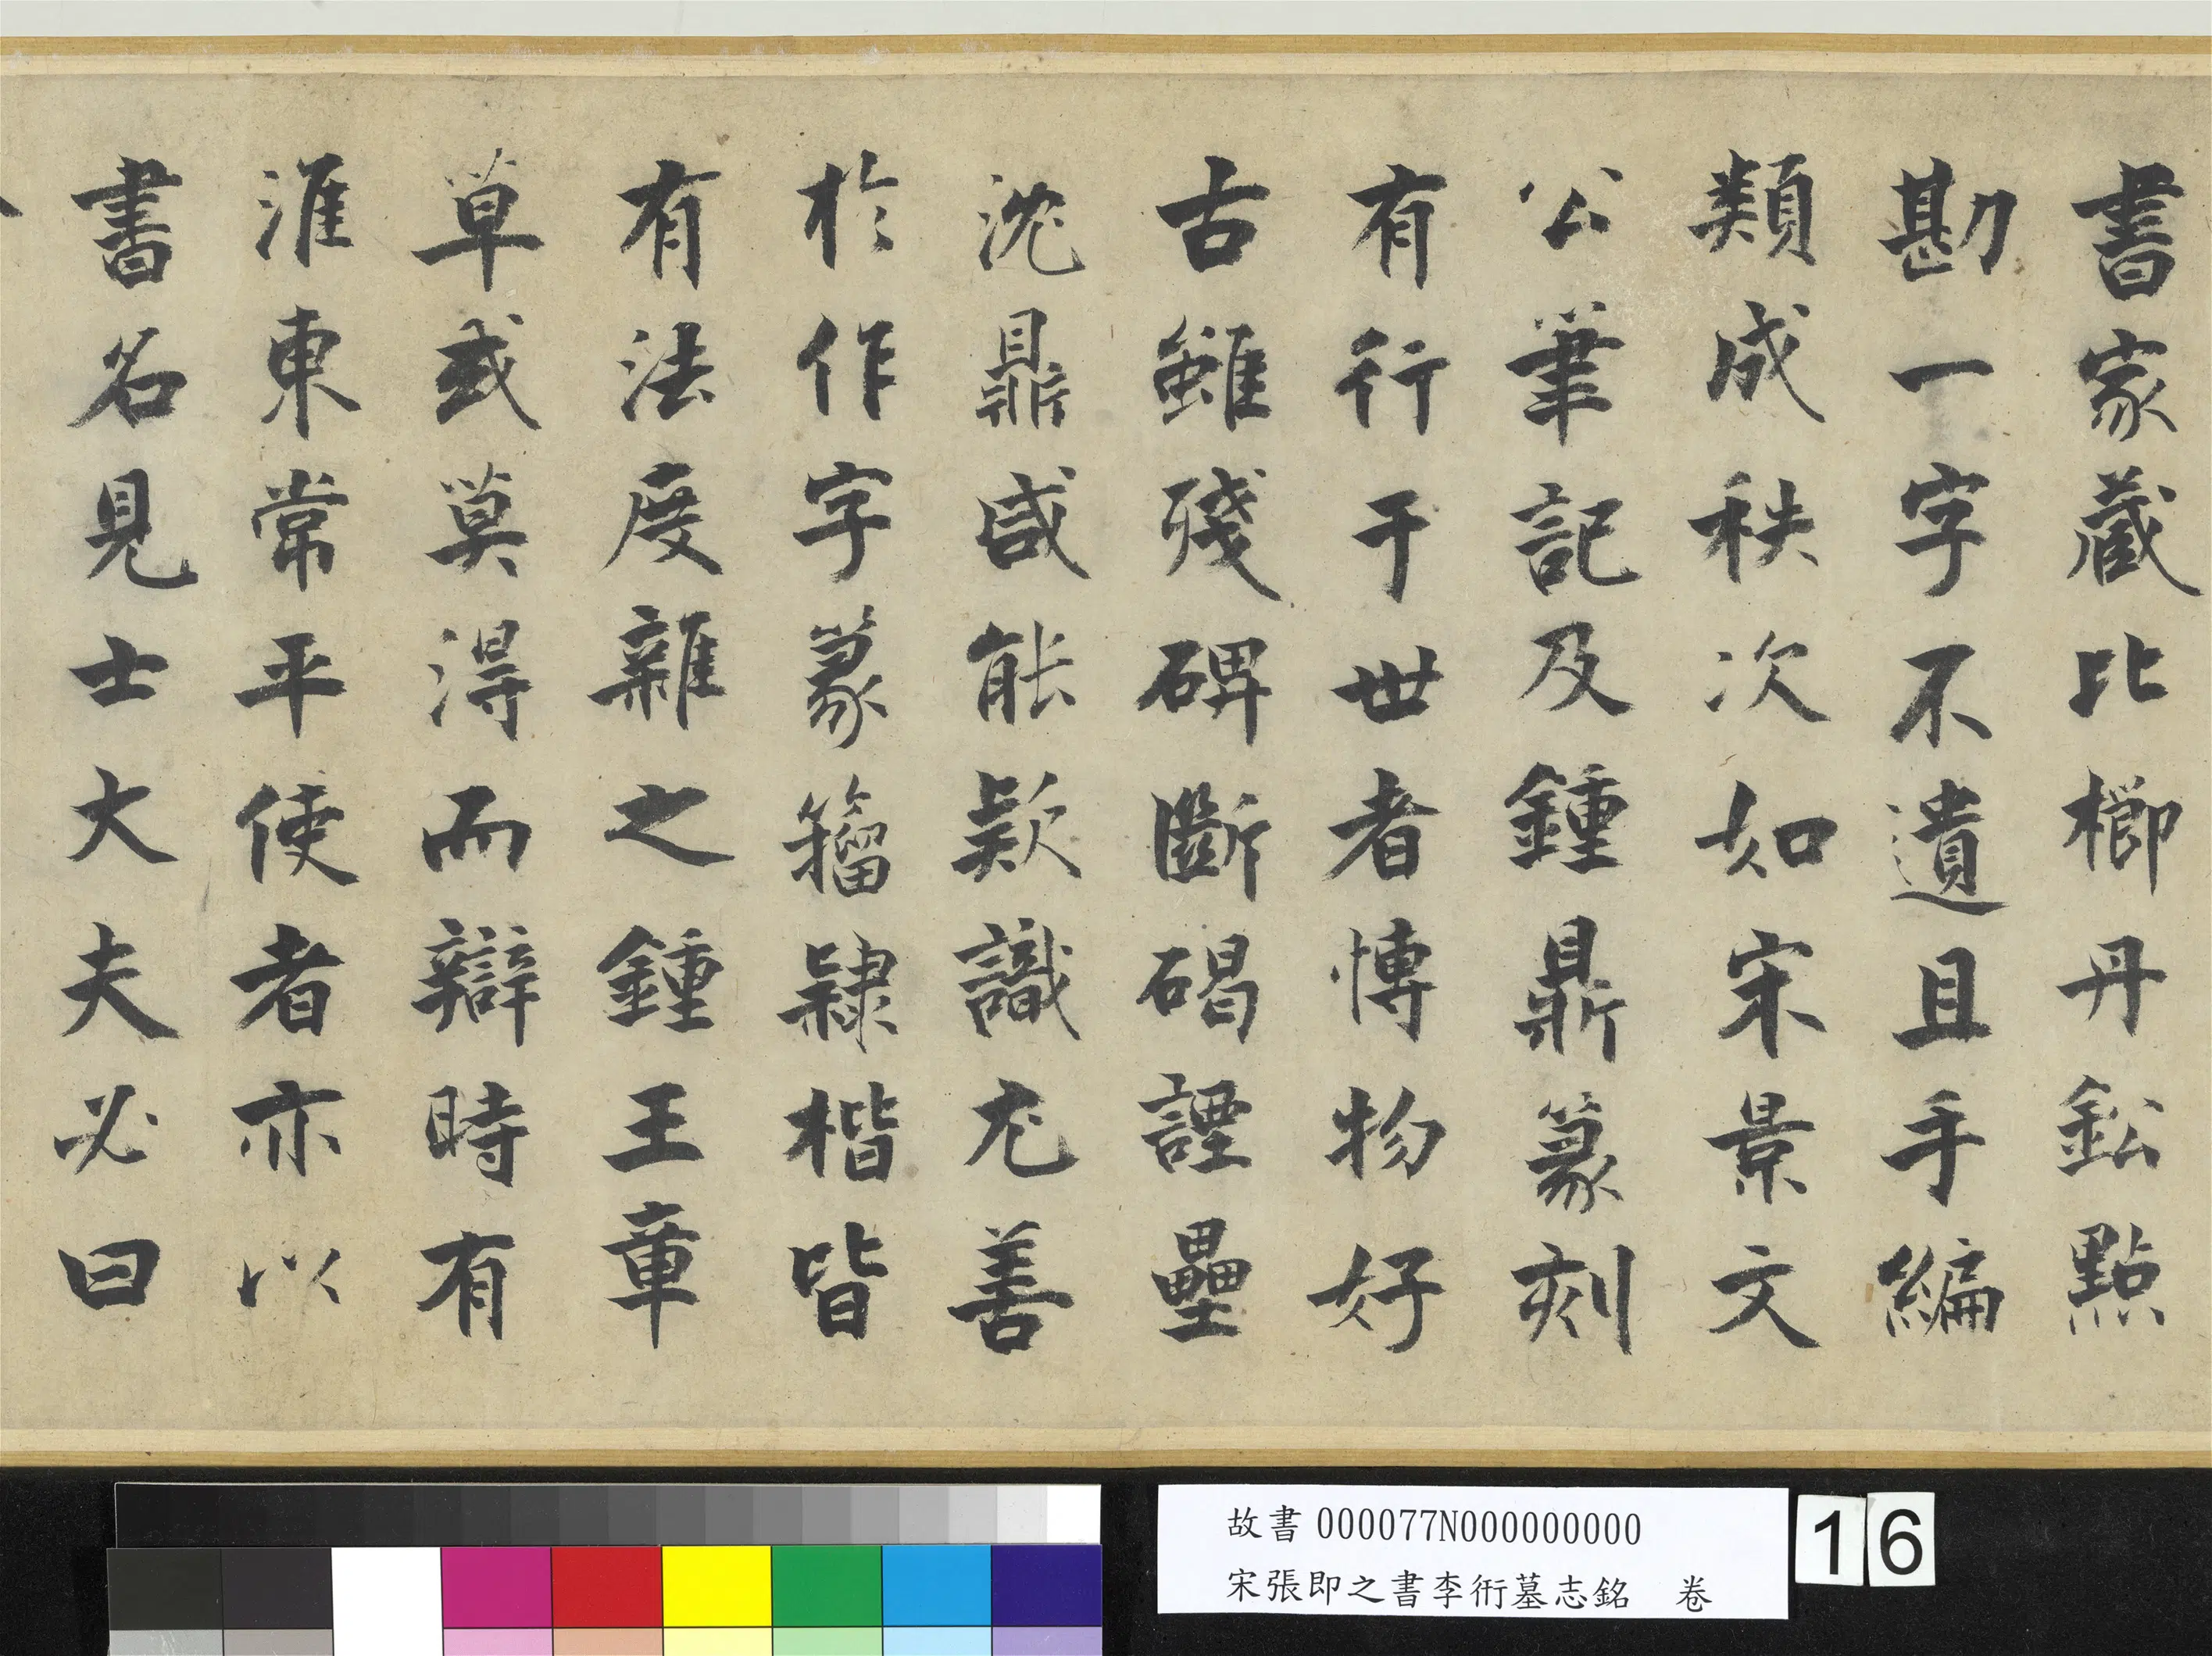 書家藏比櫛丹鈆點
勘一字不遺且手編
類成秩次如宋景文
公筆記及鍾鼎篆刻
有行于世者博物好
古雖殘碑斷碣譚壘
沈鼎咸能欵識尤善
於作字篆籀隸楷皆
有法度雜之鍾王章
草或莫淂而辯時有
淮東常平使者亦以
書名見士大夫必曰
故書000077N000000000
宋張即之書李衎墓志銘 卷
16